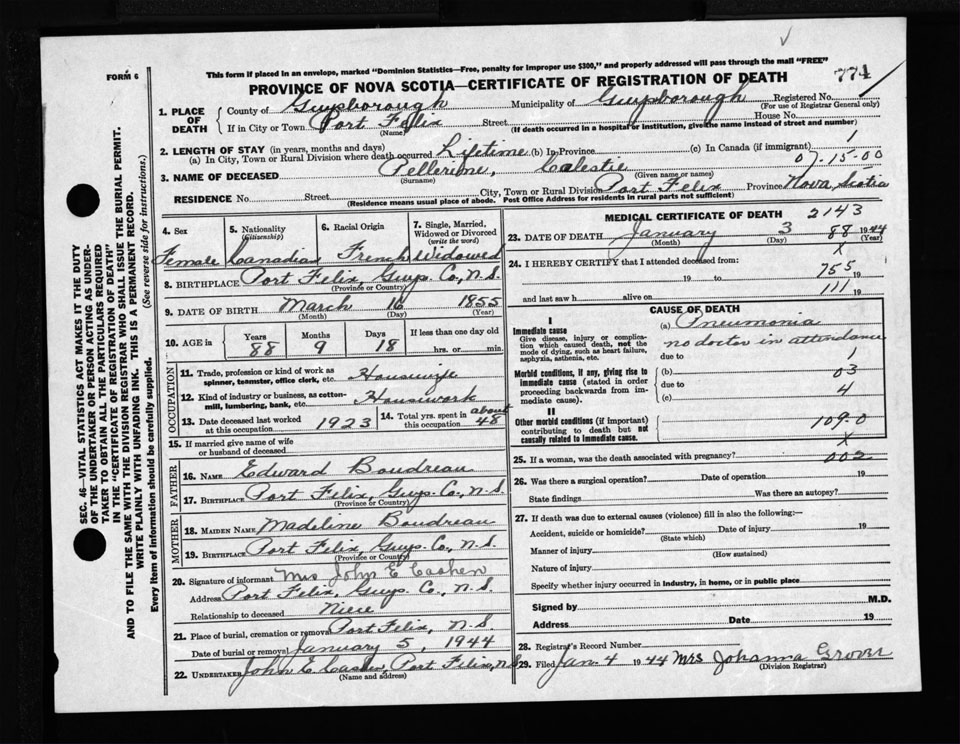 FORM 6
This form if placed in an envelope, marked "Dominion Statistics—Free, penalty for improper use $300," and properly addressed will pass through the mail "FREE"
PROVINCE OF NOVA SCOTIA—CERTIFICATE OF REGISTRATION OF DEATH
774
1. PLACE OF DEATH
County of Guysborough Municipality of Guysborough Registered No.
(For use of Registrar General only)
If in City or Town Port Felix Street House No.
(Name) (If death occurred in a hospital or institution, give the name instead of street and number)
2. LENGTH OF STAY (in years, months and days)
(a) In City, Town or Rural Division where death occurred Lifetime (b) In Province (c) In Canada (if immigrant) 1
07-15-00
3. NAME OF DECEASED Pellerine, Celestie
(Surname) (Given name or names)
RESIDENCE No. Street City, Town or Rural Division Port Felix Province Nova Scotia
(Residence means usual place of abode. Post Office Address for residents in rural parts not sufficient)
4. Sex
5. Nationality (Citizenship)
6. Racial Origin
7. Single, Married, Widowed or Divorced (write the word)
Female Canadian French Widowed
8. BIRTHPLACE Port Felix, Guys. Co, N.S.
(Province or Country)
9. DATE OF BIRTH March 16 1855
(Month) (Day) (Year)
10. AGE in Years Months Days If less than one day old
88 9 18 hrs. or min.
OCCUPATION
11. Trade, profession or kind of work as spinner, teamster, office clerk, etc. Housewife
12. Kind of industry or business, as cotton-mill, lumbering, bank, etc. Housework
13. Date deceased last worked at this occupation 1923
14. Total yrs. spent in this occupation about 48
15. If married give name of wife or husband of deceased
FATHER
16. NAME Edward Boudreau
17. BIRTHPLACE Port Felix, Guys. Co., N.S.
(Province or Country)
MOTHER
18. MAIDEN NAME Madeline Boudreau
19. BIRTHPLACE Port Felix, Guys. Co, N.S.
(Province or Country)
20. Signature of informant Mrs. John E Cashen
Address Port Felix, Guys. Co., N.S.
Relationship to deceased Niece
21. Place of burial, cremation or removal Port Felix, N.S.
Date of burial or removal January 5, 1944
22. UNDERTAKER John E. Cashen, Port Felix, N.S.
(Name and address)
MEDICAL CERTIFICATE OF DEATH 2143
23. DATE OF DEATH January 3 88 1944
(Month) (Day) (Year)
x
24. I HEREBY CERTIFY that I attended deceased from:
755
19 to 19
111
and last saw h alive on 19
CAUSE OF DEATH
I
Immediate cause
Give disease, injury or complication which caused death, not the mode of dying, such as heart failure, asphyxia, asthenia, etc.
(a) Pneumonia
no doctor in attendance
due to 1
Morbid conditions, if any, giving rise to immediate cause (stated in order proceeding backwards from immediate cause).
(b) 03
due to 4
(c)
II
Other morbid conditions (if important) contributing to death but not causally related to immediate cause.
109-0
x
25. If a woman, was the death associated with pregnancy? 002
26. Was there a surgical operation? Date of operation 19
State findings Was there an autopsy?
27. If death was due to external causes (violence) fill in also the following:—
Accident, suicide or homicide? Date of injury 19
(State which)
Manner of injury
(How sustained)
Nature of injury
Specify whether injury occurred in industry, in home, or in public place
Signed by M.D.
Address Date 19
28. Registrar's Record Number
29. Filed Jan. 4 1944 Mrs Johanna Grover
(Division Registrar)
SEC. 46—VITAL STATISTICS ACT MAKES IT THE DUTY
OF THE UNDERTAKER OR PERSON ACTING AS UNDER-
TAKER TO OBTAIN ALL THE PARTICULARS REQUIRED
IN THE "CERTIFICATE OF REGISTRATION OF DEATH"
AND TO FILE THE SAME WITH THE DIVISION REGISTRAR WHO SHALL ISSUE THE BURIAL PERMIT.
WRITE PLAINLY WITH UNFADING INK. THIS IS A PERMANENT RECORD.
Every item of information should be carefully supplied. (See reverse side for instructions.)